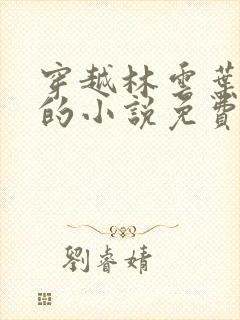 穿越林雲葉
的小說免費
劉睿婧